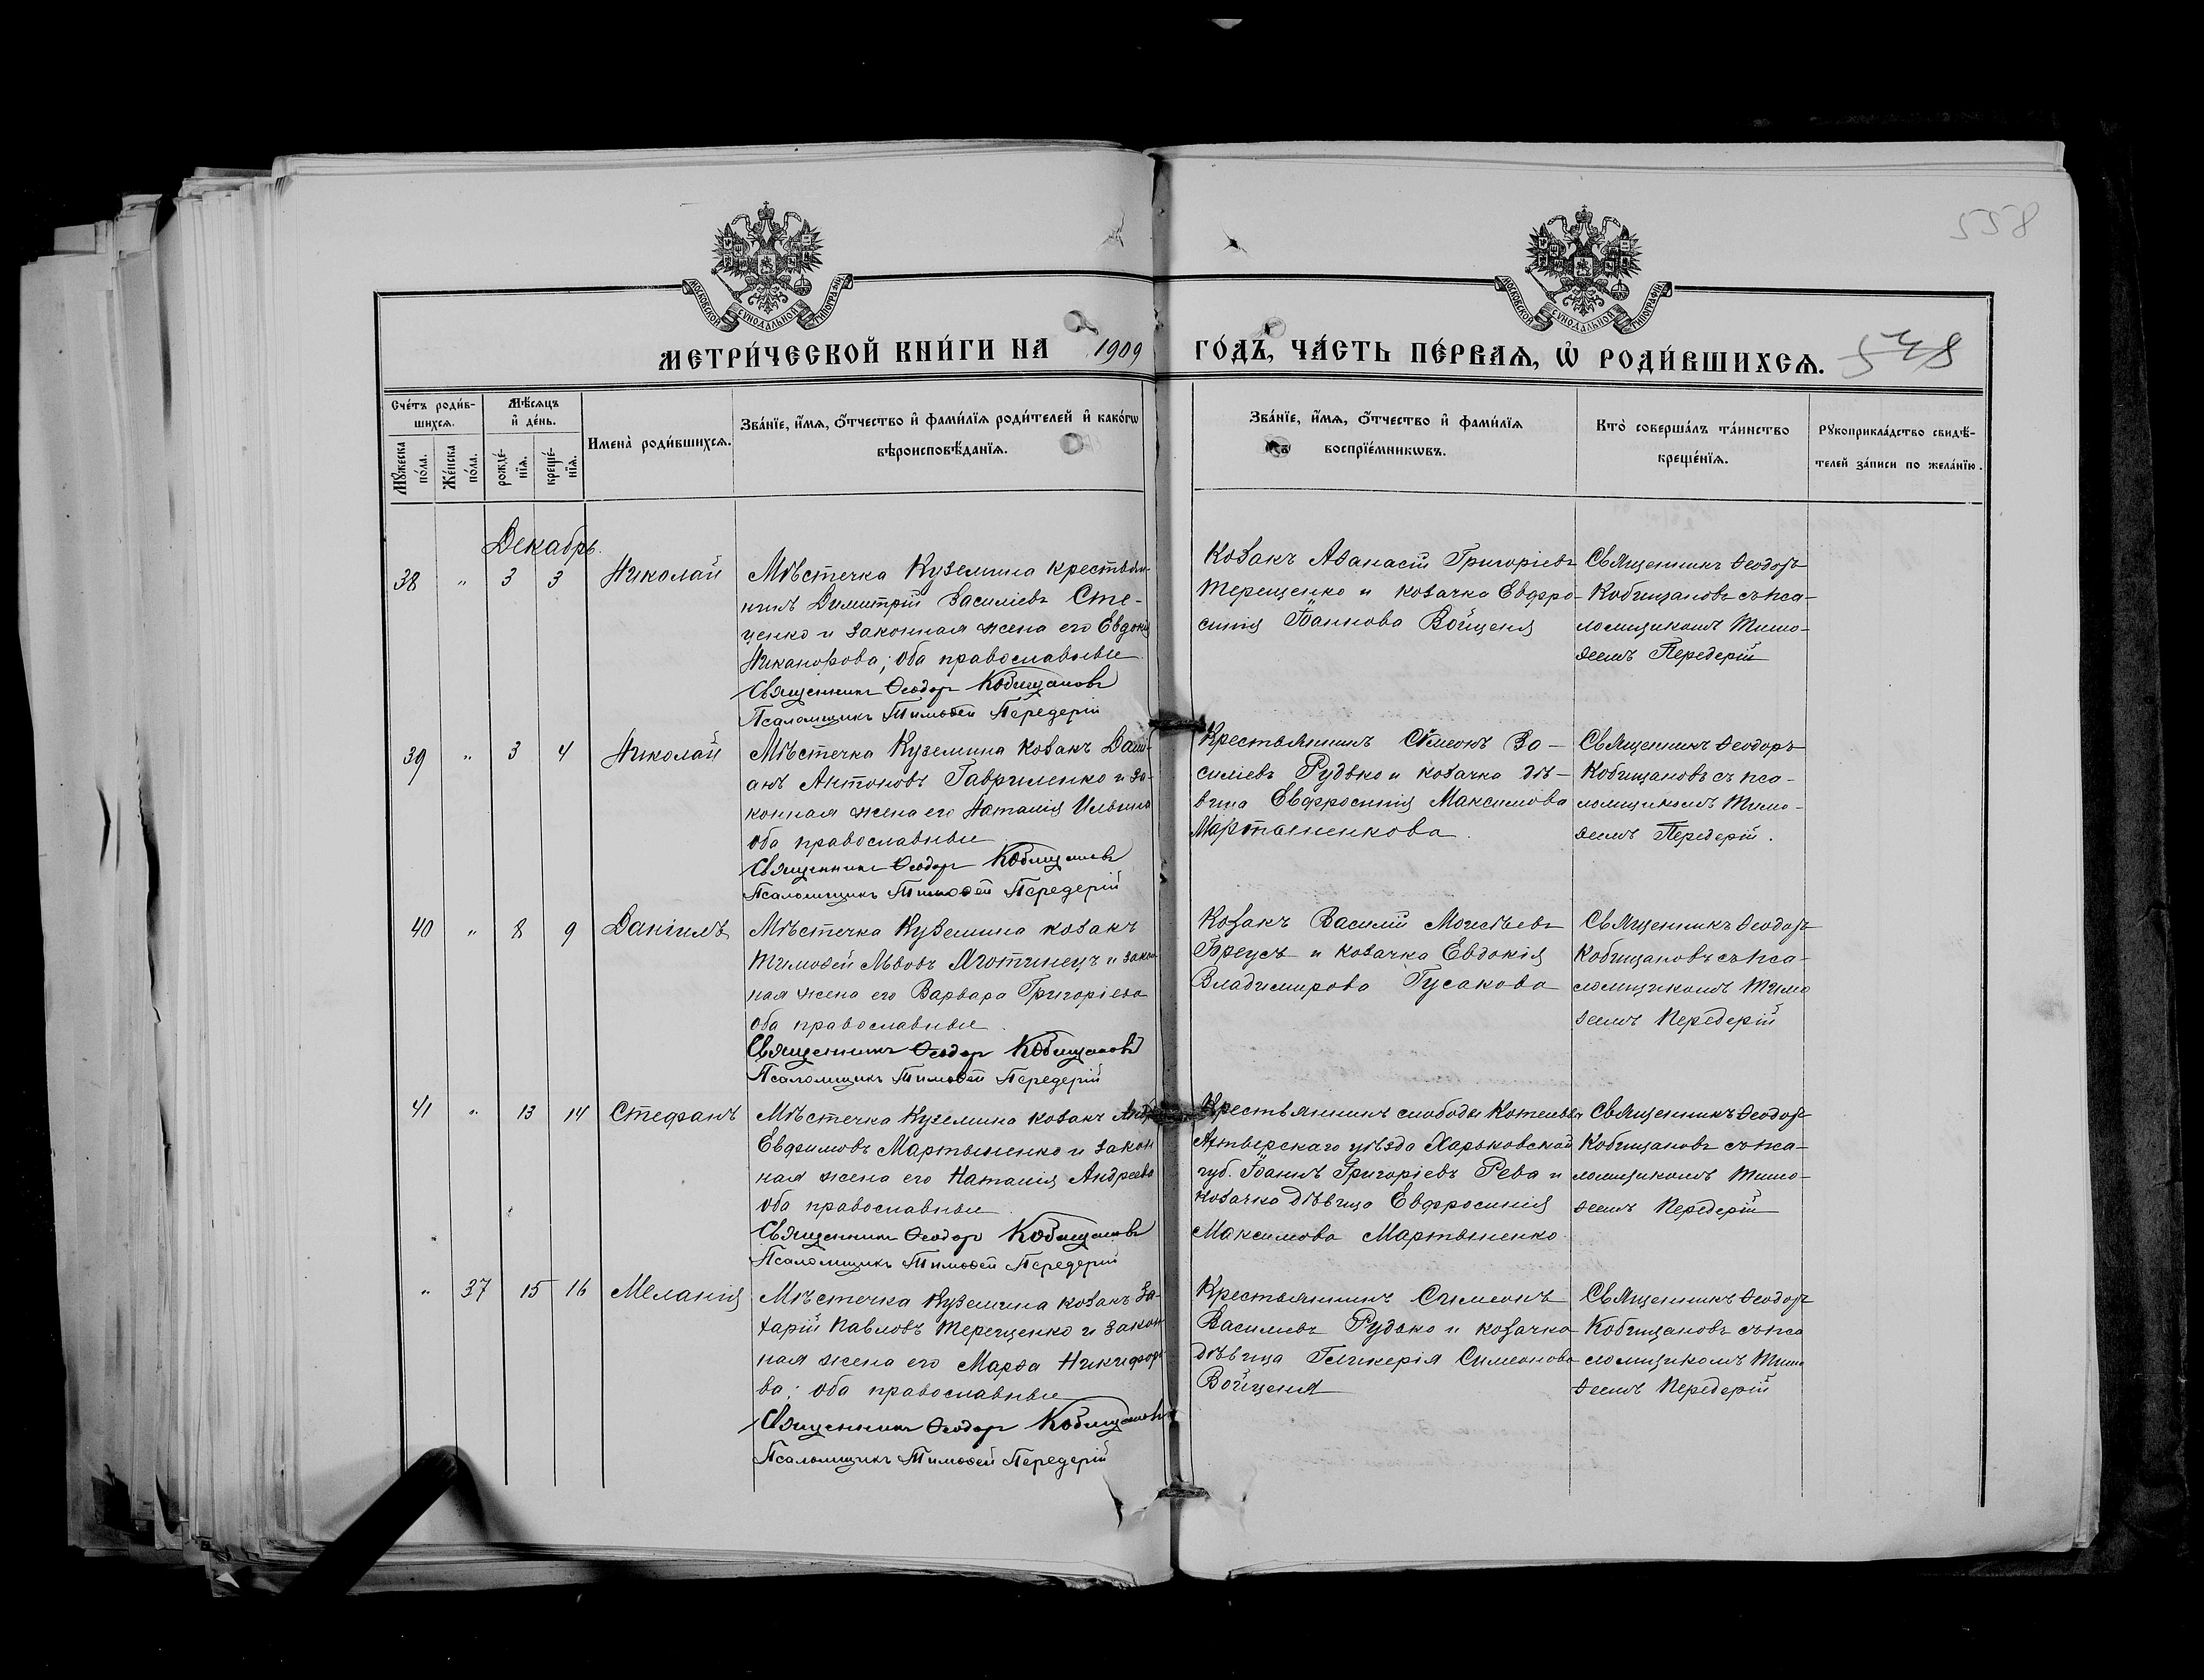 558
МОСКОВСКОЙ СУНОДАЛЬНОЙ ТИПОГРАФІИ
МОСКОВСКОЙ СУНОДАЛЬНОЙ ТИПОГРАФІИ
МЕТРИ́ЧЕСКОЙ КНИ́ГИ НА 1909 ГО́ДЪ, ЧА́СТЬ ПЕ́РВАѦ, Ѡ҆ РОДИ́ВШИХСѦ. 548
Сче́тъ роди́в-
шихсѧ.
Мꙋ́жеска по́ла.
Же́нска по́ла.
Мѣ́сѧцъ
и҆ де́нь.
рожде́-
нїѧ.
креще́-
нїѧ.
Имена̀ роди́вшихсѧ.
Зва́нїе, и҆́мѧ, ѻ҆́тчество и҆ фами́лїѧ роди́телей и҆ како́гѡ
вѣроисповѣ́данїѧ.
Зва́нїе, и҆́мѧ, ѻ҆́тчество и҆ фами́лїѧ
воспрїе́мникѡвъ.
Кто̀ соверша́лъ та́инство
креще́нїѧ.
Рꙋкоприкла́дство свидѣ́-
телей за́писи по жела́нїю.
Декабрь
38 " 3 3 Николай
Мѣстечка Куземина крестья-
нинъ Димитрій Василіевъ Сте-
ценко и законная жена его Евдокія
Никанорова; оба православные
Священникъ Ѳеодоръ Кобищановъ
Псаломщикъ Тимоѳей Передерій
Козакъ Аѳанасій Григоріевъ
Терещенко и козачка Евфро-
синія Іоаннова Войценя
Священникъ Ѳеодоръ
Кобищановъ съ пса-
ломщикомъ Тимо-
ѳеемъ Передерій
39 " 3 4 Николай
Мѣстечка Куземина козакъ
Антоновъ Гавриленко и за-
конная жена его Наталія Ильина
оба православные
Священникъ Ѳеодоръ Кобищановъ
Псаломщикъ Тимоѳей Передерій
Крестьянинъ Сѵмеонъ Ва-
силіевъ Рудько и козачка дѣ-
вица Евфросинія Максимова
Мартыненкова.
Священникъ Ѳеодоръ
Кобищановъ съ пса-
ломщикомъ Тимо-
ѳеемъ Передерій.
40 " 8 9 Даніилъ
Мѣстечка Куземина козакъ
Тимоѳей Львовъ Яготинецъ и закон-
ная жена его Варвара Григоріева
оба православные.
Священникъ Ѳеодоръ Кобищановъ
Псаломщикъ Тимоѳей Передерій
Козакъ Василій Моисѣевъ
Бреусъ и козачка Евдокія
Владимирова Гусакова
Священникъ Ѳеодоръ
Кобищановъ съ пса-
ломщикомъ Тимо
ѳеемъ Передерій
41 " 13 14 Стефанъ
Мѣстечка Куземина козакъ
Евфимовъ Мартыненко и закон
ная жена его Наталія Андреева
оба православные.
Священникъ Ѳеодоръ Кобищановъ
Псаломщикъ Тимоѳей Передерій
Крестьянинъ слободы Котельвы
Ахтырскаго уѣзда Харьковской
губ. Іоаннъ Григоріевъ Рева и
козачка дѣвица Евфросинія
Максимова Мартыненко
Священникъ Ѳеодоръ
Кобищановъ съ пса-
ломщикомъ Тимо-
ѳеемъ Передерій
" 37 15 16 Меланія
Мѣстечка Куземина козакъ За-
харій Павловъ Терещенко и закон
ная жена его Марѳа Никифоро-
ва; оба православные
Священникъ Ѳеодоръ Кобищановъ
Псаломщикъ Тимоѳей Передерій
Крестьянинъ Симеонъ
Василіевъ Рудько и козачка
дѣвица Гликерія Симеонова
Войценя
Священникъ Ѳеодоръ
Кобищановъ съ пса
ломщикомъ Тимо
ѳеемъ Передерій